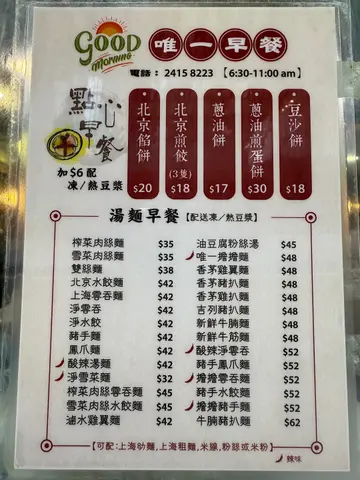 GOOD
MORNING
唯一早餐
電話： 2415 8223 【6:30-11:00 am】
點心
早餐
加$6配
凍/熱豆漿
北京餡餅
$20
北京煎餃
(3隻)
$18
蔥油餅
$17
蔥油煎蛋餅
$30
豆沙餅
$18
湯麵早餐【配送凍/熱豆漿】
榨菜肉絲麵 $35
雪菜肉絲麵 $35
雙絲麵 $38
北京水餃麵 $42
上海雲吞麵 $42
淨雲吞 $42
淨水餃 $42
豬手麵 $42
鳳爪麵 $42
酸辣湯麵 $42
淨雪菜麵 $32
榨菜肉絲雲吞麵 $42
雪菜肉絲水餃麵 $42
滷水雞翼麵 $42
油豆腐粉絲湯 $45
唯一擔擔麵 $48
香茅雞翼麵 $48
香茅豬扒麵 $48
香茅雞扒麵 $48
吉列豬扒麵 $48
新鮮牛腩麵 $48
新鮮牛筋麵 $48
酸辣淨雲吞 $52
豬手鳳爪麵 $52
擔擔雲吞麵 $52
豬手水餃麵 $52
擔擔豬手麵 $52
牛腩豬扒麵 $62
【可配:上海幼麵,上海粗麵,米線,粉絲或米粉】
辣味